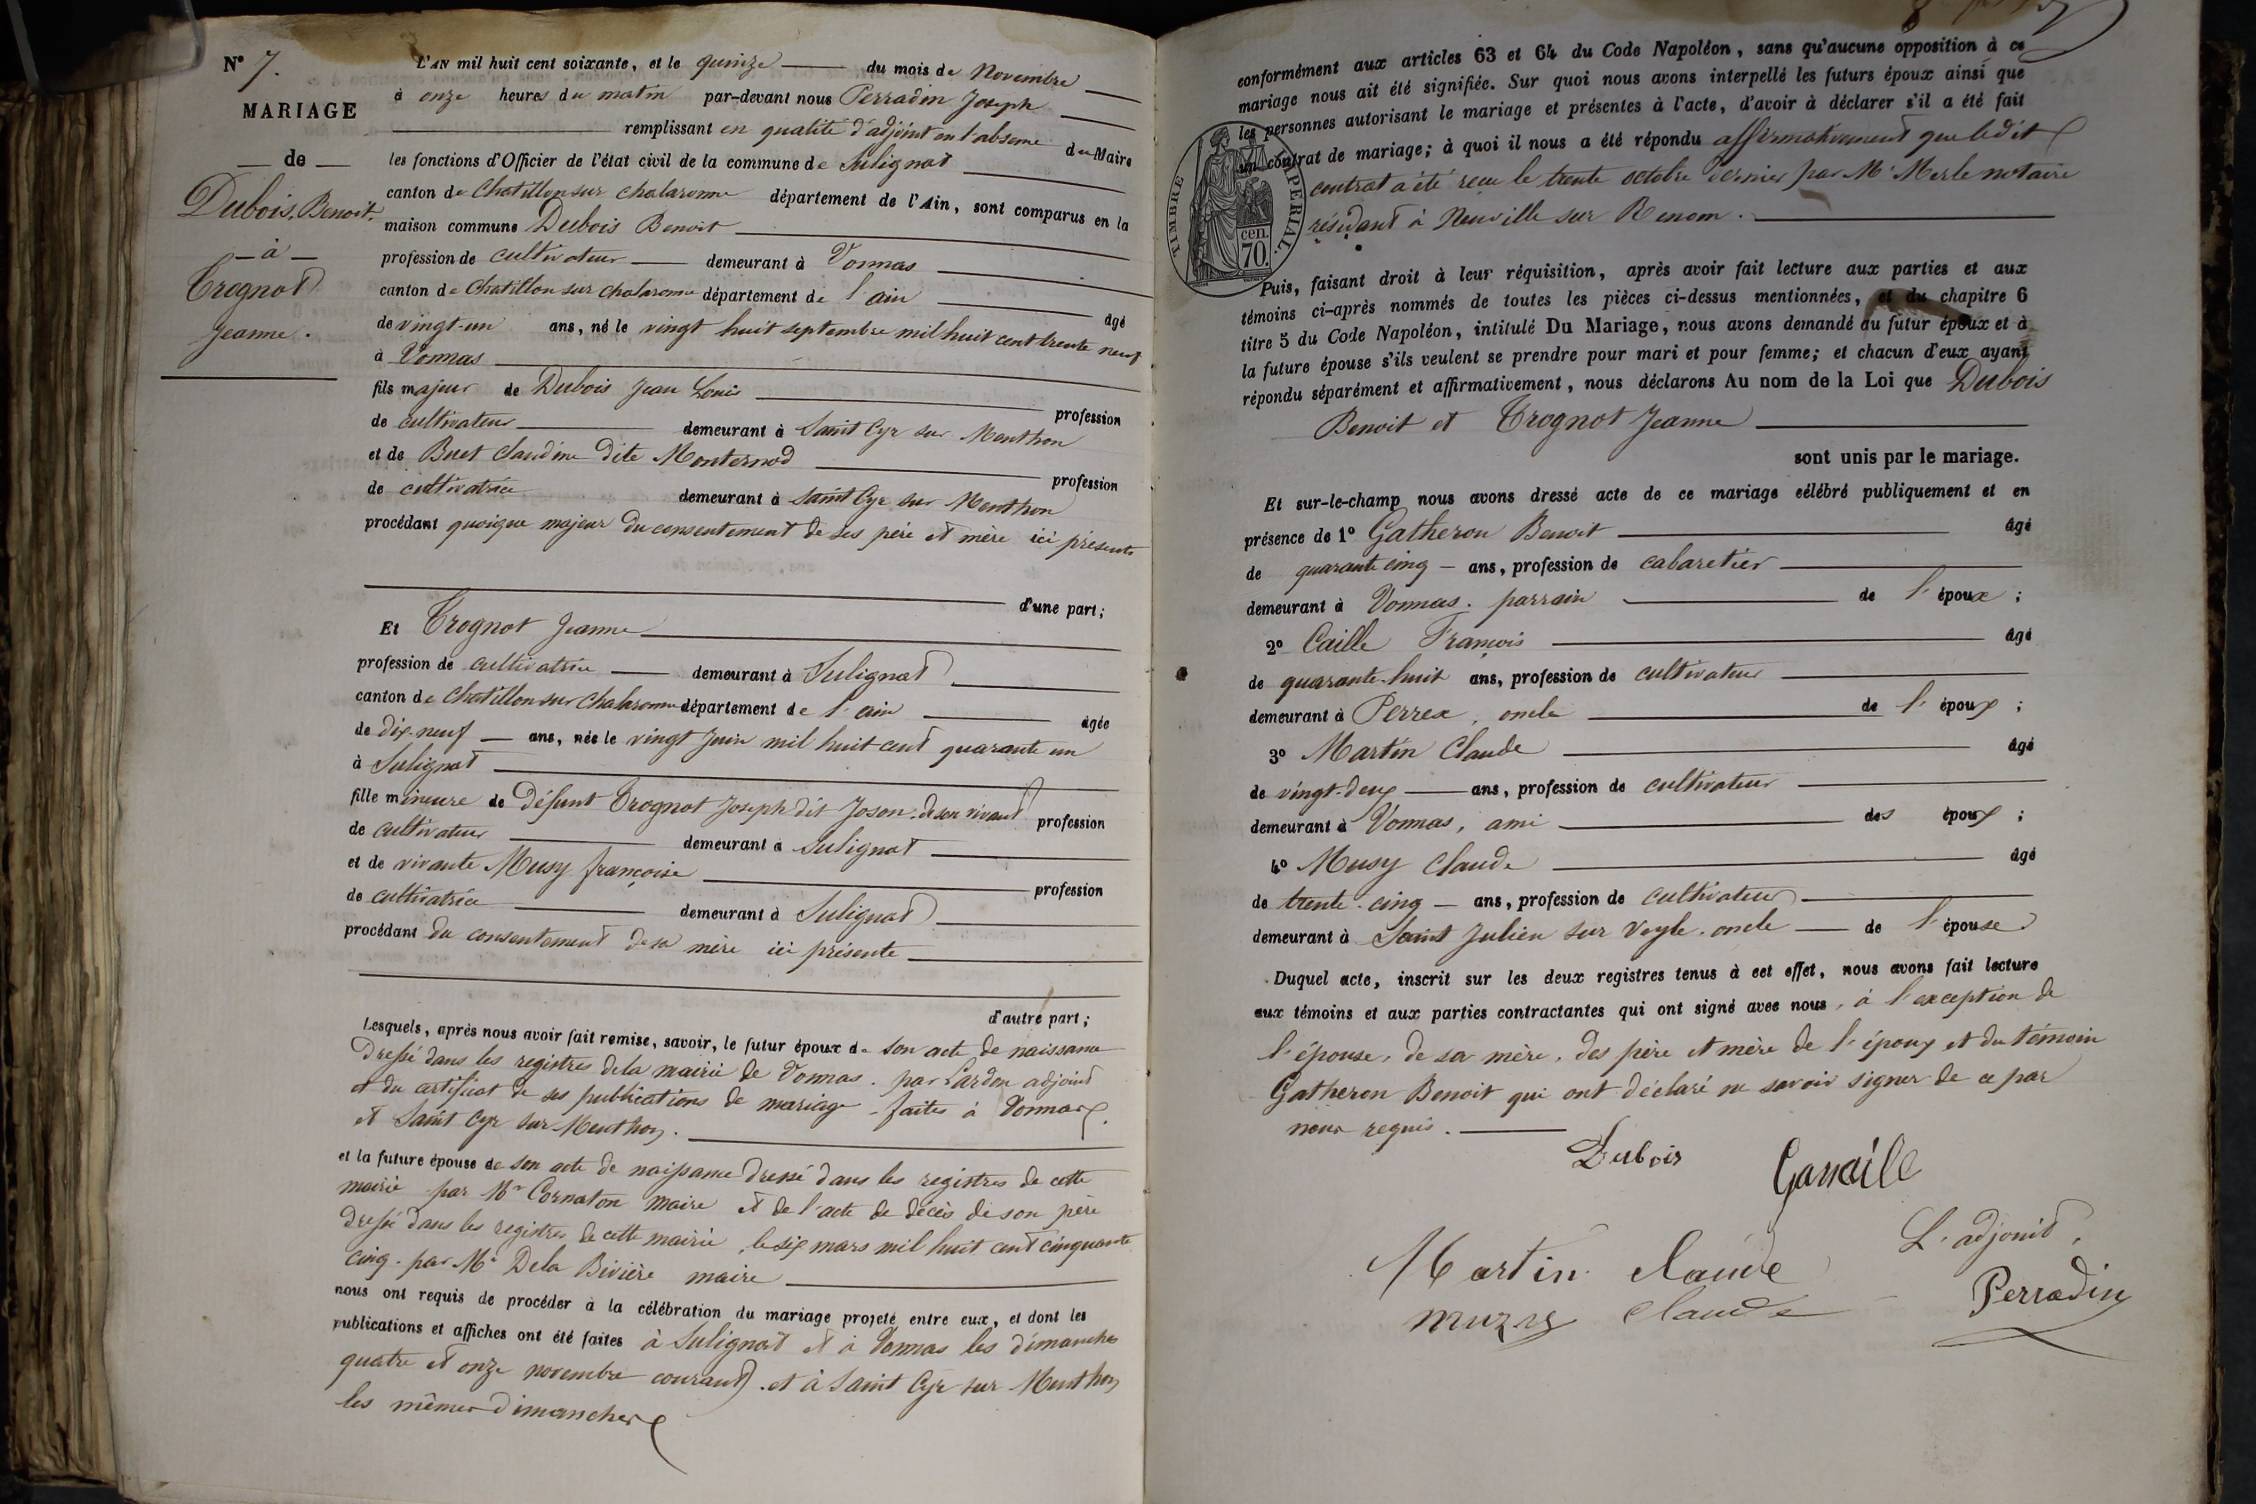 N° 7.
MARIAGE
de
Dubois, Benoit.
à
Trognat
Jeanne.
L'AN mil huit cent soixante, et le quinze du mois de Novembre
à onze heures du matin par-devant nous Perradin Joseph
remplissant en qualité d'adjoint en l'absence du Maire
les fonctions d'Officier de l'état civil de la commune de Sulignat
canton de Chatillon sur chalaronne département de l'Ain, sont comparus en la
maison commune Dubois Benoit
profession de cultivateur demeurant à Vonnas
canton de Chatillon sur chalaronne département de l'ain âgé
de vingt-un ans, né le vingt huit septembre mil huit cent trente neuf
à Vonnas
fils majeur de Dubois Jean Louis profession
de cultivateur demeurant à Saint Cyr sur Menthon
et de Buet Claudine dite Monternod profession
de cultivatrice demeurant à Saint Cyr sur Menthon
procédant quoique majeur du consentement de ses père et mère ici présents
d'une part;
Et Trognat Jeanne
profession de cultivatrice demeurant à Sulignat
canton de Chatillon sur Chalaronne département de l'ain âgée
de dix-neuf ans, née le vingt Juin mil huit cent quarante un
à Sulignat
fille mineure de défunt Trognat Joseph dit Joson, de son vivant profession
de cultivateur demeurant à Sulignat
et de vivante Musy françoise profession
de cultivatrice demeurant à Sulignat
procédant du consentement de sa mère ici présente
d'autre part;
Lesquels, après nous avoir fait remise, savoir, le futur époux de son acte de naissance
dressé dans les registres de la mairie de Vonnas. par Lardon adjoint
et du certificat de ses publications de mariage faites à Vonnas
et Saint Cyr sur Menthon.
et la future épouse de son acte de naissance dressé dans les registres de cette
mairie par Mr Cornaton maire et de l'acte de décès de son père
dressé dans les registres de cette mairie, le six mars mil huit cent cinquante
cinq. par Mr Dela Bivière maire
nous ont requis de procéder à la célébration du mariage projeté entre eux, et dont les
publications et affiches ont été faites à Sulignat et à Vonnas les dimanches
quatre et onze novembre courant, et à Saint Cyr sur Menthon
les mêmes dimanches
conformément aux articles 63 et 64 du Code Napoléon, sans qu'aucune opposition à ce
mariage nous ait été signifiée. Sur quoi nous avons interpellé les futurs époux ainsi que
les personnes autorisant le mariage et présentes à l'acte, d'avoir à déclarer s'il a été fait
un contrat de mariage; à quoi il nous a été répondu affirmativement que ledit
contrat a été reçu le trente octobre dernier par Me Merle notaire
résidant à Neuville sur Renom.
TIMBRE IMPERIAL.
cen.
70.
Puis, faisant droit à leur réquisition, après avoir fait lecture aux parties et aux
témoins ci-après nommés de toutes les pièces ci-dessus mentionnées, et du chapitre 6
titre 5 du Code Napoléon, intitulé Du Mariage, nous avons demandé au futur époux et à
la future épouse s'ils veulent se prendre pour mari et pour femme; et chacun d'eux ayant
répondu séparément et affirmativement, nous déclarons Au nom de la Loi que Dubois
Benoit et Trognat Jeanne
sont unis par le mariage.
Et sur-le-champ nous avons dressé acte de ce mariage célébré publiquement et en
présence de 1° Gatheron Benoit âgé
de quarante cinq ans, profession de cabaretier
demeurant à Vonnas. parrain de l'époux;
2° Caille François âgé
de quarante-huit ans, profession de cultivateur
demeurant à Perrex, oncle de l'époux;
3° Martin Claude âgé
de vingt-deux ans, profession de cultivateur
demeurant à Vonnas, ami des époux;
4° Musy Claude âgé
de trente-cinq ans, profession de cultivateur
demeurant à Saint Julien sur Veyle. oncle de l'épouse
Duquel acte, inscrit sur les deux registres tenus à cet effet, nous avons fait lecture
aux témoins et aux parties contractantes qui ont signé avec nous, à l'exception de
l'épouse, de sa mère, des père et mère de l'époux et du témoin
Gatheron Benoit qui ont déclaré ne savoir signer de ce par
nous requis.
Dubois
Martin Claude
L'adjoint,
muzy Claude
Perradin